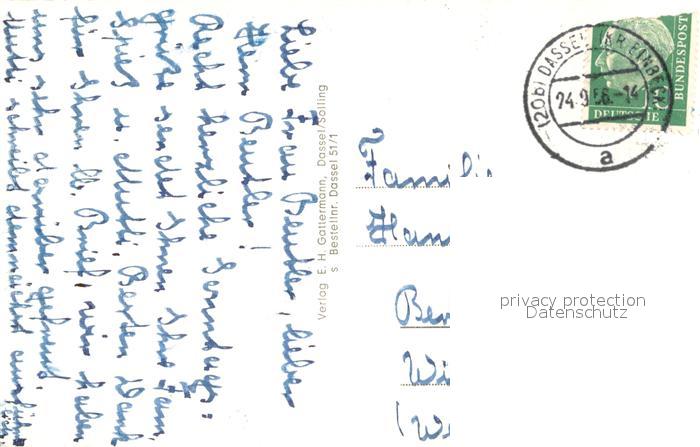 Liebe Frau Beutler, lieber
Herr Beutler!
Recht herzliche Sonntags-
grüße sendet Ihnen Ihre Fam.
u. Mutti Besten Dank
für Ihren lb. Brief, wir haben
uns sehr darüber gefreut
Mutti schreibt demnächst
Verlag E. H. Gattermann, Dassel/Solling
s Bestellnr. Dassel 51/1
Famili
Han
Ber
Wi
(W
(20b) DASSEL (KR. EINBECK)
24.9.56.-14
a
DEUTSCHE
BUNDESPOST
privacy protection
Datenschutz